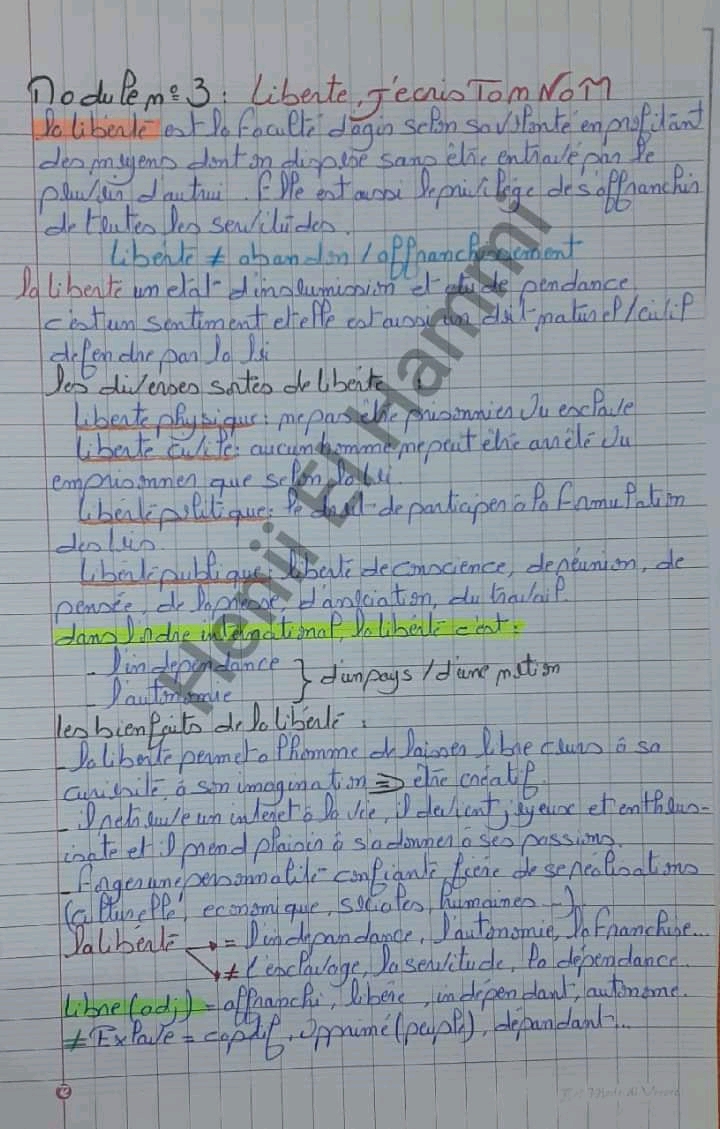 Module n° 3 : Liberté, j'écris Tom NoM
la liberté est la faculté d'agir selon sa volonté en profitant
des moyens dont on dispose sans être entravé par le
pouvoir d'autrui. Elle est aussi le privilège de s'affranchir
de toutes les servitudes.
Liberté ≠ abandon / affranchissement
la liberté un état d'insoumission et de pendance
c'est un sentiment et elle est aussi un droit naturel / civil
defendre par la loi
les diverses sortes de liberté :
liberté physique : ne pas être prisonnier ou esclave
liberté civile : aucun homme ne peut être arrêté ou
emprisonner que selon la loi.
liberté politique : le droit de participer à la formulation
des lois.
liberté publique : liberté de conscience, de réunion, de
pensée, de la presse, d'association, du travail.
dans l'ordre international, la liberté c'est :
- l'independance } d'un pays / d'une nation
- l'autonomie
les bienfaits de la liberté :
- la liberté permet a l'homme de laisser libre cours à sa
curiosité, à son imagination ⇒ être créatif.
- il retrouve un interet à la vie, il devient joyeux et enthous-
iaste et il prend plaisir à s'adonner à ses passions.
- Forger une personnalité confiante, fière de ses réalisations
(culturelle, economique, sociales, humaines...)
la liberté → = l'indépandance, l'autonomie, la franchise...
↘ ≠ l'esclavage, la servitude, la dépendance...
libre (adj) = affranchi, libéré, indépendant, autonome.
≠ Exlave = captif, opprimé (peuple), dépandant...
Henii El Hammi